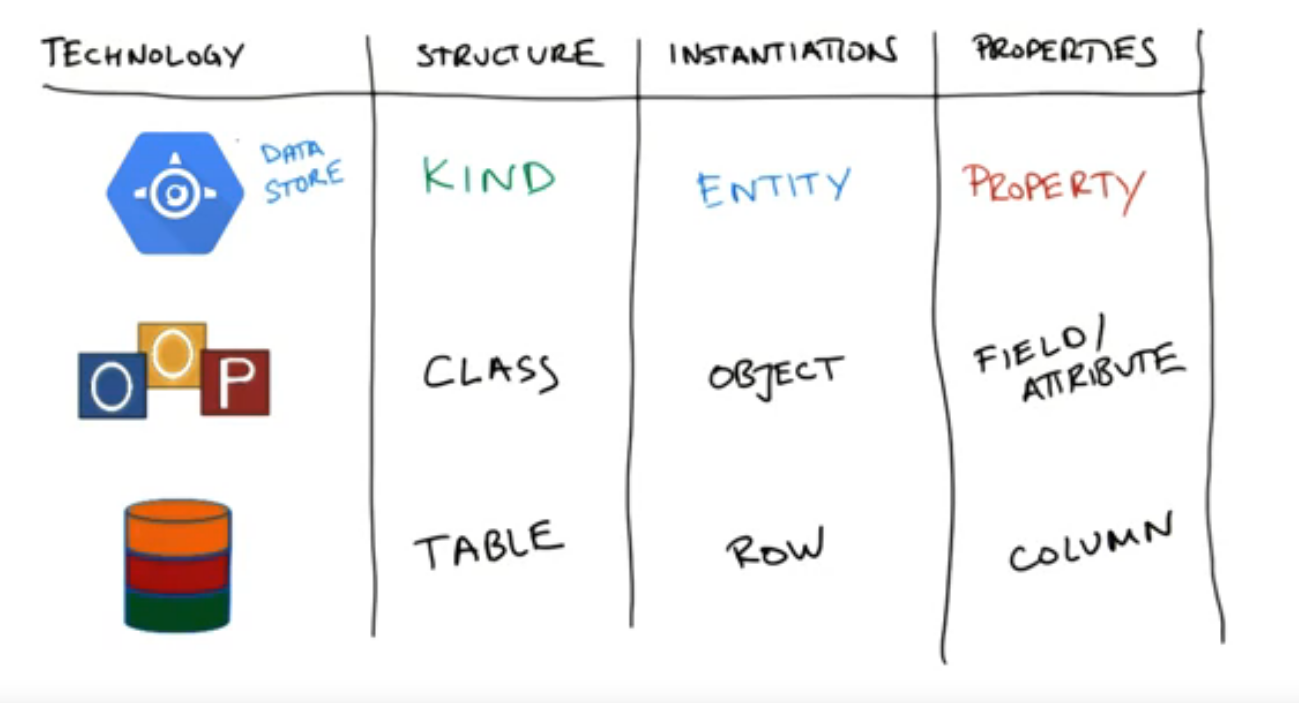 TECHNOLOGY STRUCTURE INSTANTIATION PROPERTIES
DATA
STORE
KIND ENTITY PROPERTY
OOP
CLASS OBJECT FIELD/
ATTRIBUTE
TABLE ROW COLUMN